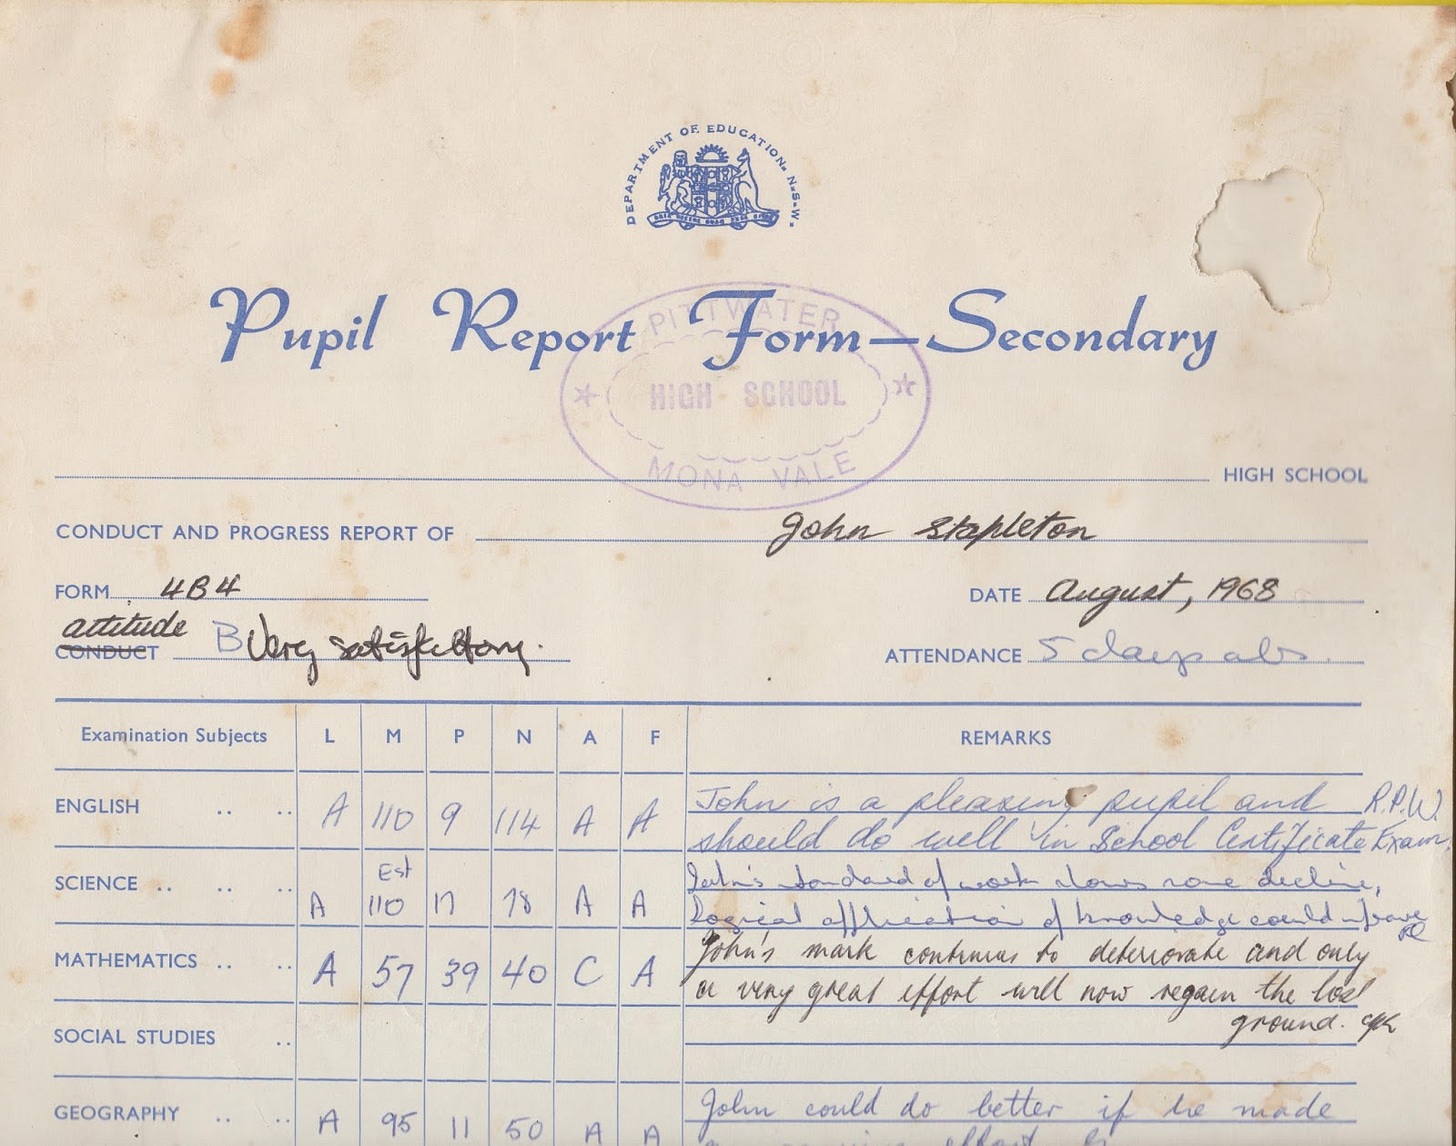 DEPARTMENT OF EDUCATION. N.S.W.
Pupil Report Form—Secondary
PITTWATER
HIGH SCHOOL
MONA VALE
HIGH SCHOOL
CONDUCT AND PROGRESS REPORT OF John Stapleton
FORM 4B4 DATE August, 1968
attitude
CONDUCT B Very satisfactory. ATTENDANCE 5 days abs.
Examination Subjects L M P N A F REMARKS
ENGLISH .. .. A 110 9 114 A A John is a pleasing pupil and R.P.W.
should do well in School Certificate Exam.
SCIENCE .. .. .. A Est 110 17 78 A A John's standard of work shows some decline,
Logical application of knowledge could improve
MATHEMATICS .. .. A 57 39 40 C A John's mark continues to deteriorate and only
a very great effort will now regain the lost
ground.
SOCIAL STUDIES ..
GEOGRAPHY .. .. A 95 11 50 A A John could do better if he made
effort